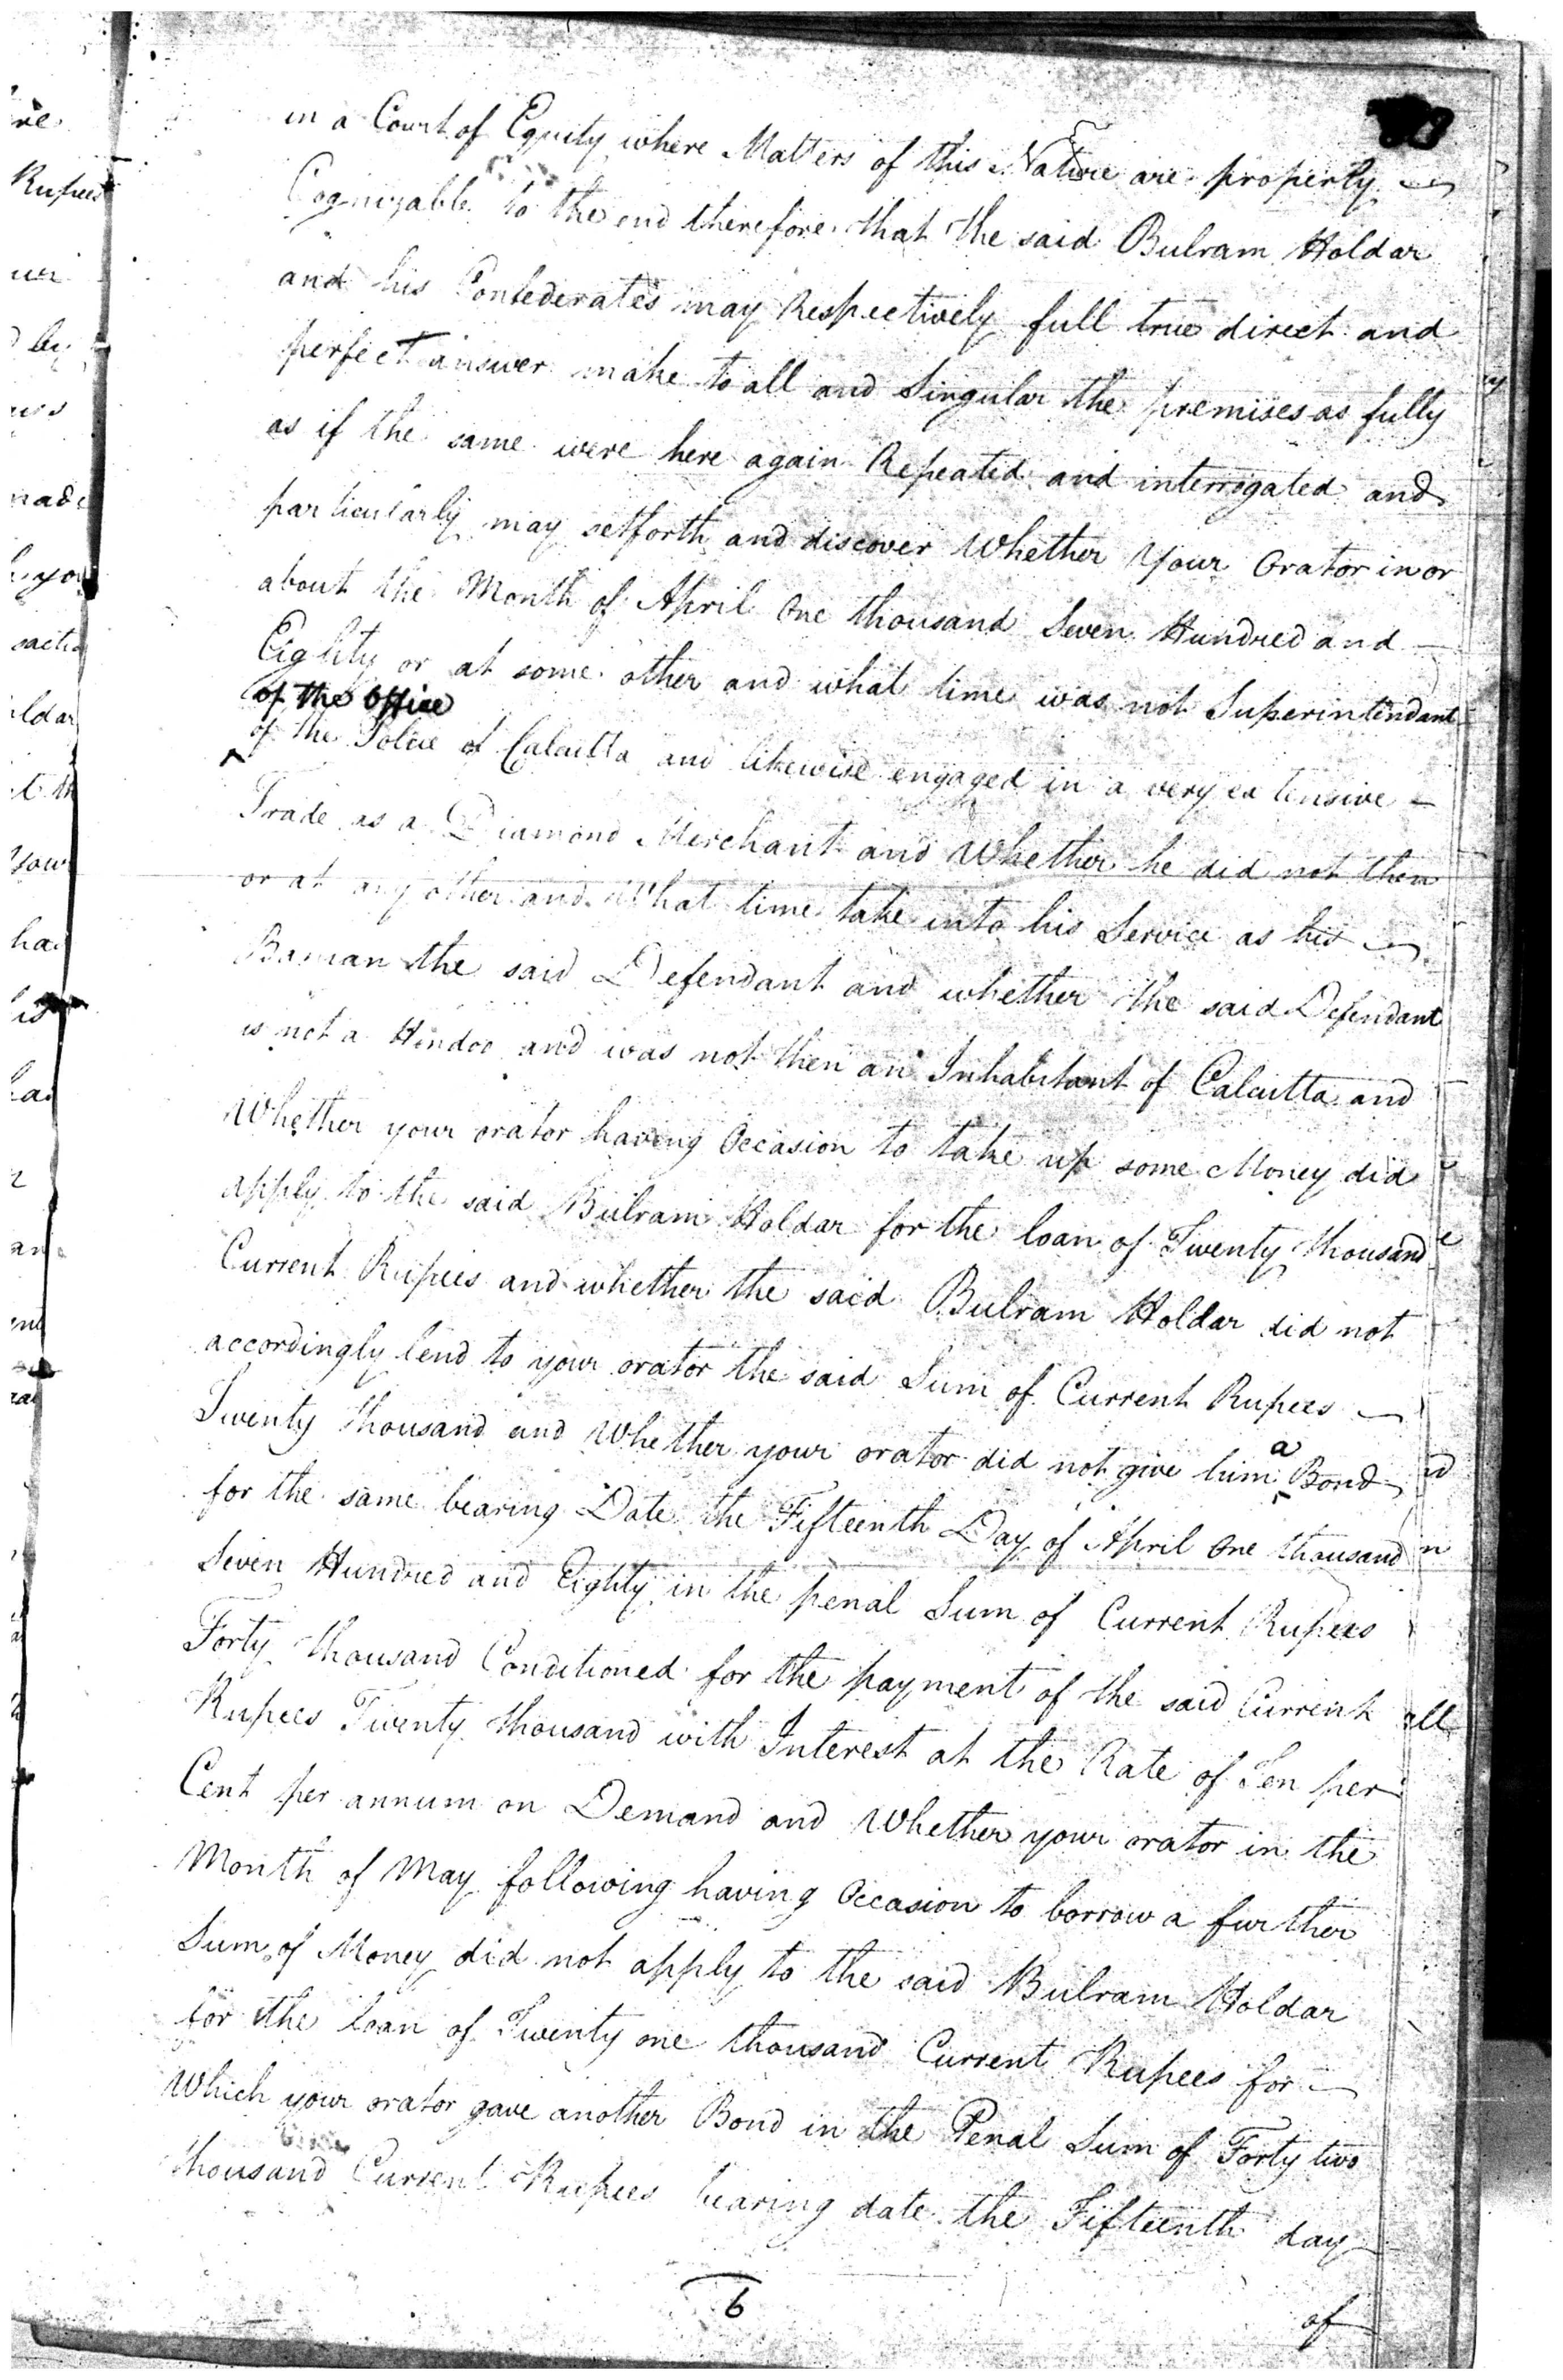 in a Court of Equity where Matters of this Nature are properly
Cognizable to the end therefore that the said Bulram Holdar
and his Confederates may Respectively full true direct and
perfect answer make to all and Singular the premises as fully
as if the same were here again Repeated and interrogated and
particularly may setforth and discover Whether Your Orator in or
about the Month of April One thousand Seven Hundred and
Eighty or at some other and what time was not Superintendant
of the Office
of the Police of Calcutta and likewise engaged in a very extensive
Trade as a Diamond Merchant and Whether he did not then
or at any other and What time take into his Service as his
Banian the said Defendant and whether the said Defendant
is not a Hindoo and was not then an Inhabitant of Calcutta and
Whether your orator having Occasion to take up some Money did
apply to the said Bulram Holdar for the loan of Twenty thousand
Current Rupees and whether the said Bulram Holdar did not
accordingly lend to your orator the said Sum of Current Rupees
Twenty thousand and Whether your orator did not give him a Bond
for the same bearing Date the Fifteenth Day of April One thousand
Seven Hundred and Eighty in the penal Sum of Current Rupees
Forty thousand Conditioned for the payment of the said Current
Rupees Twenty thousand with Interest at the Rate of Ten per
Cent per annum on Demand and Whether your orator in the
Month of May following having Occasion to borrow a further
Sum of Money did not apply to the said Bulram Holdar
for the loan of Twenty one thousand Current Rupees for
Which your orator gave another Bond in the Penal Sum of Forty two
thousand Current Rupees bearing date the Fifteenth day
6
of